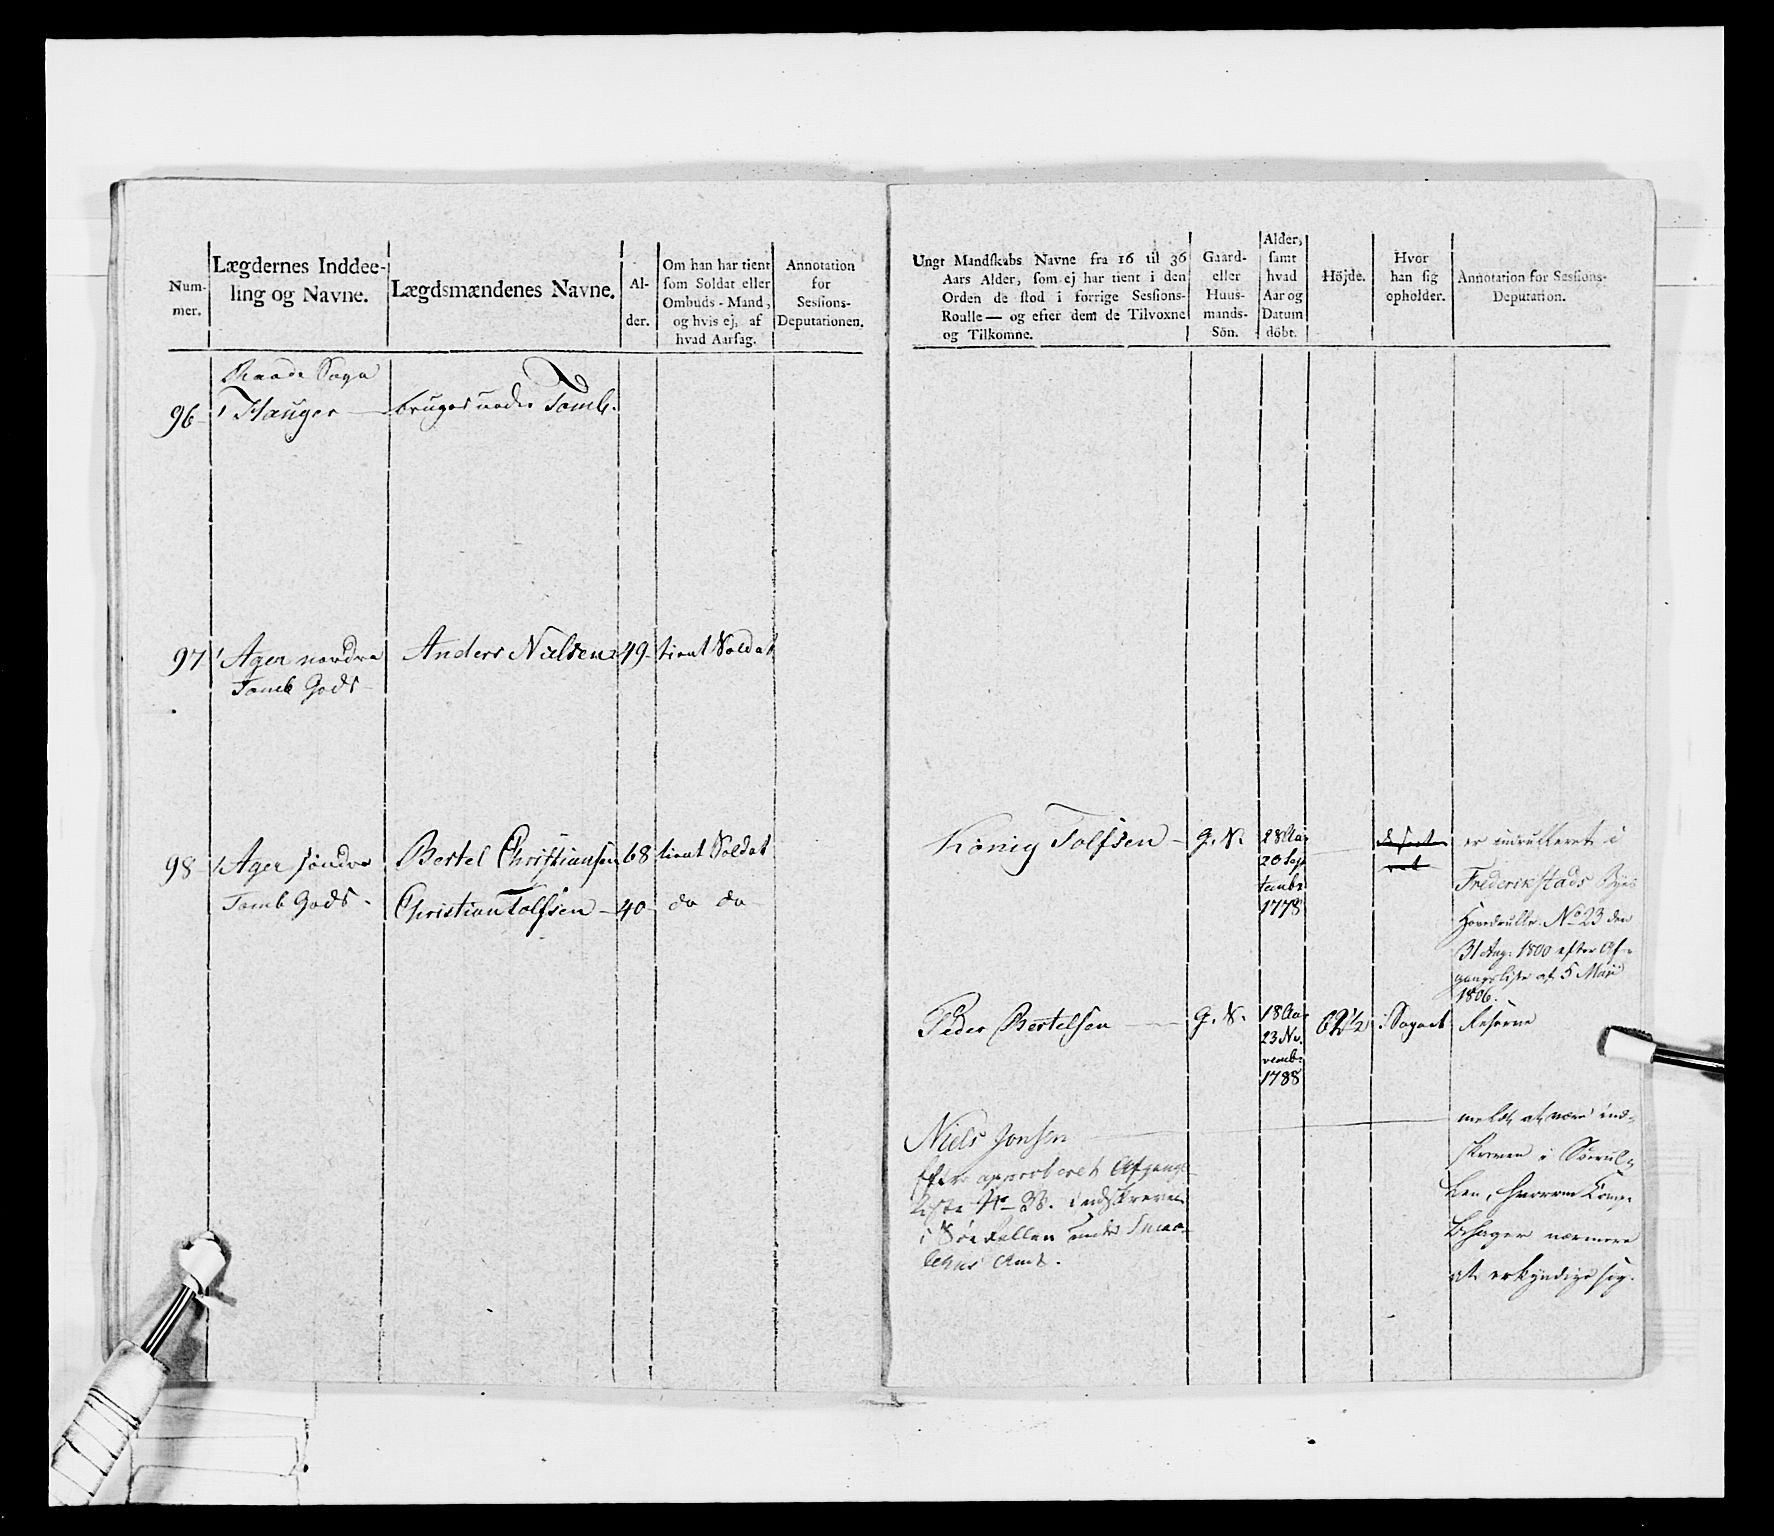 Num-
mer.
Lægdernes Inddee-
ling og Navne.
Lægdsmændenes Navne.
Al-
der.
Om han har tient
som Soldat eller
Ombuds-Mand,
og hvis ej, af
hvad Aarsag.
Annotation
for
Sessions-
Deputationen.
Raade Sogn
96 1 Hauger — bruges under Tomb.
97 1 Ager nordre Anders Nielsen 49 tient Soldat
Tomb Gods
98 1 Ager söndre Bertel Christiansen 68 tient Soldat
Tomb Gods Christian Tolfsen 40 do do
Ungt Mandskabs Navne fra 16 til 36
Aars Alder, som ej har tient i den
Orden de stod i forrige Sessions-
Roulle — og efter dem de Tilvoxne
og Tilkomne.
Gaard-
eller
Huus-
mands-
Sön.
Alder,
samt
hvad
Aar og
Datum
döbt.
Höjde.
Hvor
han sig
opholder.
Annotation for Sessions-
Deputation.
König Tolfsen — G. S. 28 Aar
20 Sep
tembr
1778
er indrulleret i
Frederikstads Byes
Hovedrulle No 23 den
31 Aug: 1800 efter Af-
gangsliste af 5 Maii
1806.
Peder Bertelsen — G. S. 18 Aar 62 1/2 i Sognet Reserve
23 No
vemb:
1788
Niels Jonsen
Efter approberet Afgangs-
liste No 38. indskreven
i Söe Rullen under Smaa-
lehns Amt.
meldt at være ind-
skreven i Söerul-
len, hvorom Comp:
behager nærmere
at erkyndige sig.